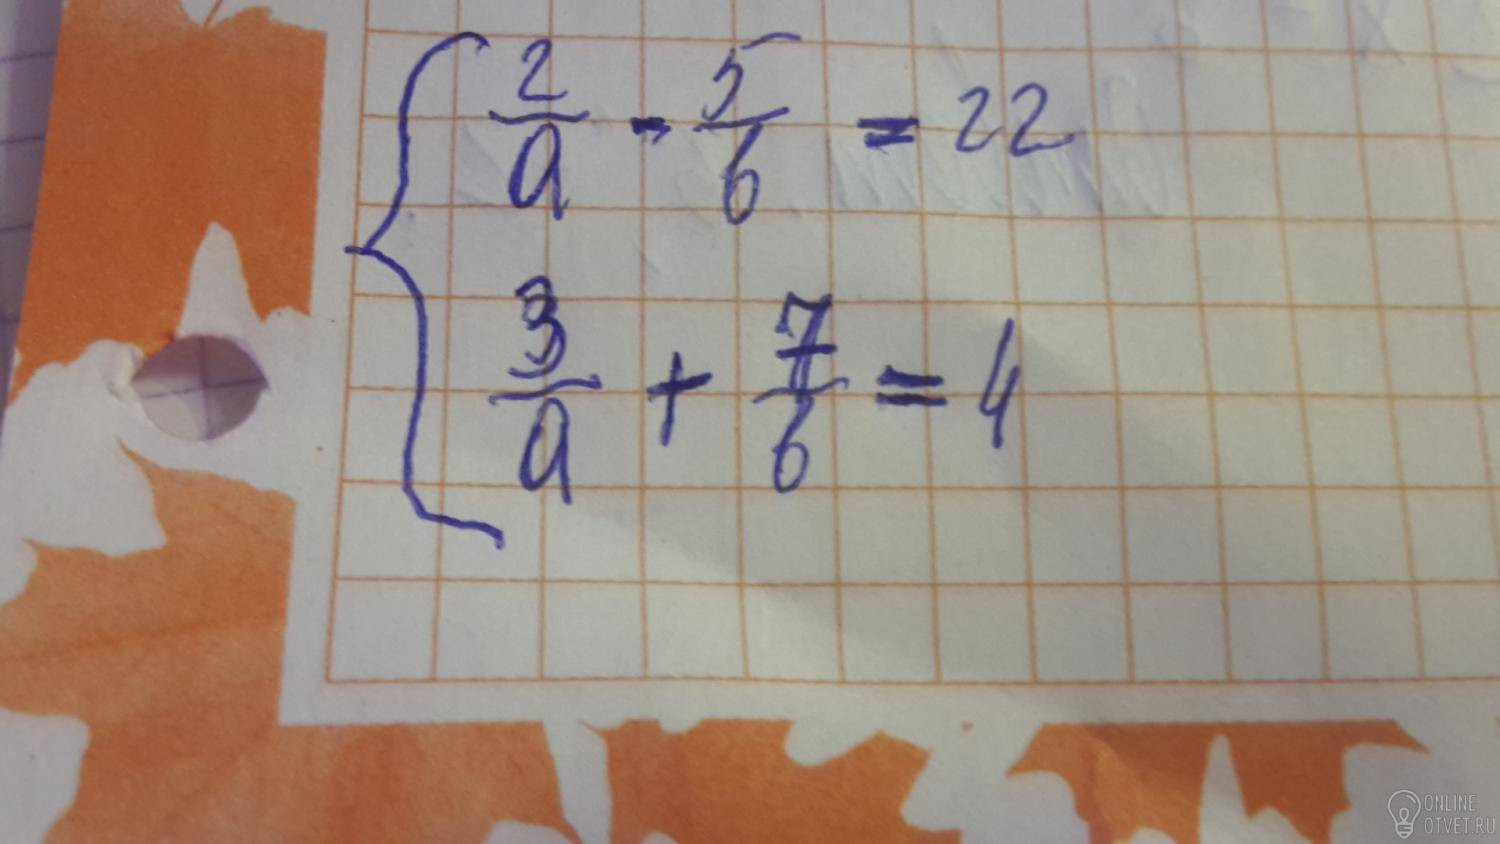 2/a - 5/b = 22
3/a + 7/b = 4
ONLINE
OTVET.RU